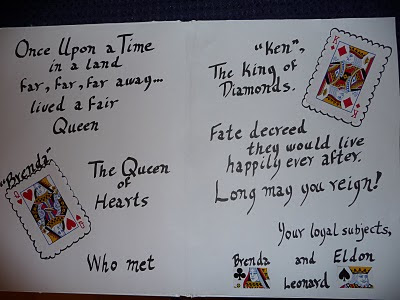 Once Upon a Time
in a land
far, far, far away...
lived a fair
Queen
"Brenda"
The Queen
of
Hearts
Who met
"Ken",
The King of
Diamonds.
Fate decreed
they would live
happily ever after.
Long may you reign!
Your loyal subjects,
Brenda and Eldon
Leonard